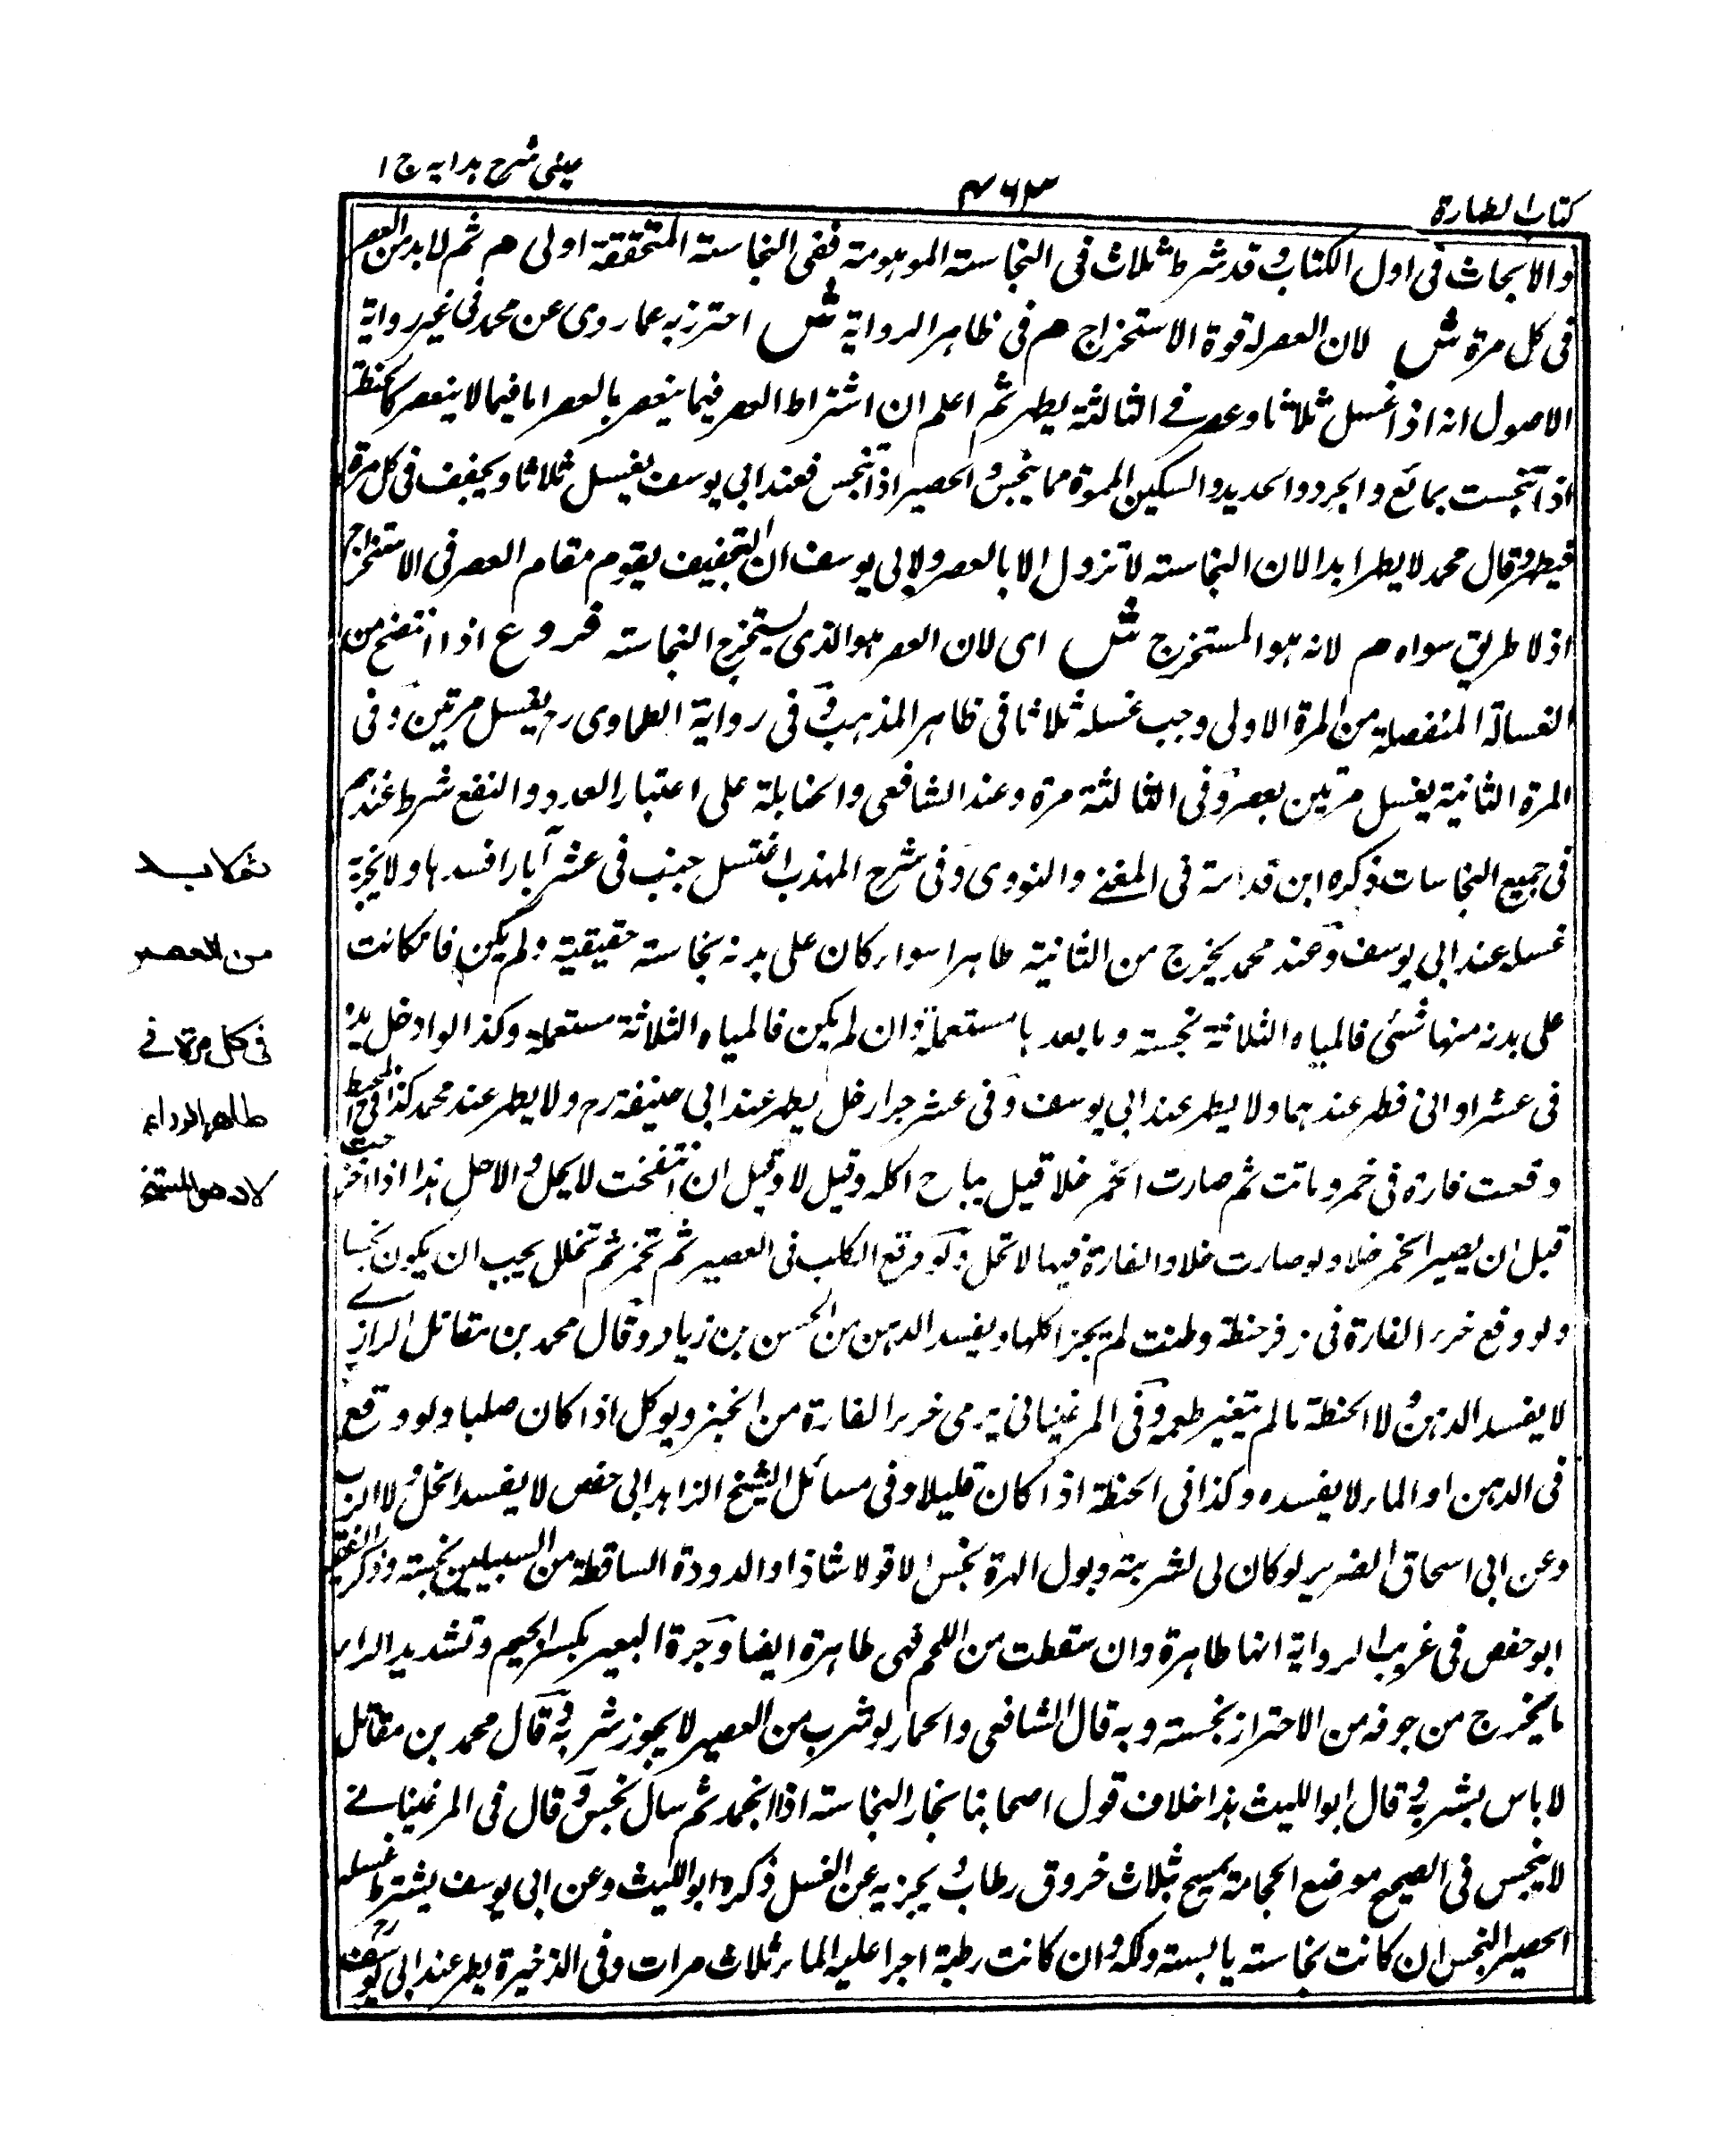 كتاب الطهارة
٤٦٣
عينى شرح هدايه ج ١
والابحاث فى اول الكتاب وقد شرط ثلاث فى النجاسة الموهومة ففى النجاسة المتحققة اولى هم ثم لابد من العصر
فى كل مرة ش لان العصر له قوة الاستخراج هم فى ظاهر الرواية ش احترز به عما روى عن محمد فى غير رواية
الاصول انه اذا غسل ثلاثا وعصر فى الثالثة يطهر ثم اعلم ان اشتراط العصر فيما ينعصر بالعصر اما فيما لا ينعصر كالحنطة
اذا تنجست بمائع والجرد والحديد والسكين المموة مما ينجس والحصير اذا تنجس فعند ابى يوسف يغسل ثلاثا ويجفف فى كل مرة
فيطهر وقال محمد لا يطهر ابدا لان النجاسة لا تزول الا بالعصر ولابى يوسف ان التجفيف يقوم مقام العصر فى الاستخراج
اذ لا طريق سواه هم لانه هو المستخرج ش اى لان العصر هو الذى يستخرج النجاسة فروع اذا انتضح من
الغسالة المنفصلة من المرة الاولى وجب غسله ثلاثا فى ظاهر المذهب وفى رواية الطحاوى رح يغسل مرتين وفى
المرة الثانية يغسل مرتين بعصر وفى الثالثة مرة وعند الشافعى والحنابلة على اعتبار العدد والنفع شرط عندهم
فى جميع النجاسات ذكره ابن قدامة فى المغنى والنووى وفى شرح المهذب اغتسل جنب فى عشر آبار افسدها ولا يجزيه
غسله عند ابى يوسف وعند محمد يخرج من الثانية طاهرا سواء كان على بدنه نجاسة حقيقية ولم يكن فان كانت
على بدنه منها شئ فالمياه الثلاثة نجسة وما بعدها مستعملة وان لم يكن فالمياه الثلاثة مستعملة وكذا لو ادخل يده
فى عشر اوانى فطهر عندهما ولا يطهر عند ابى يوسف وفى عشر جرار خل يطهر عند ابى حنيفة رح ولا يطهر عند محمد كذا فى المحيط
وقعت فارة فى خمر وماتت ثم صارت الخمر خلا قيل يباح اكله وقيل لا وقيل ان انتفخت لا يحل والاصل هذا اذا اخرجت
قبل ان يصير الخمر خلا ولو صارت خلا والفارة فيها لا تحل ولو وقع الكلب فى العصير ثم تخمر ثم تخلل يجب ان يكون نجسا
ولو وقع خرء الفارة فى وقر حنطة وطحنت لم يجز اكلها ويفسد الدهن من الحسن بن زياد وقال محمد بن مقاتل الرازى
لا يفسد الدهن ولا الحنطة ما لم يتغير طعمه وفى المرغينانى يرمى خرء الفارة من الخبز ويوكل اذا كان صلبا ولو وقع
فى الدهن او الماء لا يفسده وكذا فى الحنطة اذا كان قليلا وفى مسائل الشيخ الزاهد ابى حفص لا يفسد الخل ولا الزب
وعن ابى اسحاق الضرير لو كان لى لشربته وبول الهرة نجس الا قولا شاذا والدودة الساقطة من السبيلين نجسة وذكر الفقيه
ابو حفص فى غريب الرواية انها طاهرة وان سقطت من اللحم فهى طاهرة ايضا وجرة البعير بكسر الجيم وتشديد الراء
ما يخرج من جوفه من الاحتراز نجسة وبه قال الشافعى والحمار لو شرب من العصير لا يجوز شربه وقال محمد بن مقاتل
لا باس بشربه وقال ابو الليث هذا خلاف قول اصحابنا بخار النجاسة اذا انجمد ثم سال نجس وقال فى المرغينانى
لا ينجس فى الصحيح موضع الحجامة يمسح بثلاث خروق رطاب ويجزيه عن الغسل ذكره ابو الليث وعن ابى يوسف يشترط غسله
الحصير النجس ان كانت نجاسة يابسة ولكه وان كانت رطبة اجرا عليه الماء ثلاث مرات وفى الذخيرة يطهر عند ابى يوسف رح
ثم لا بد
من العصر
فى كل مرة فى
ظاهر الرواية
لانه هو المستخرج